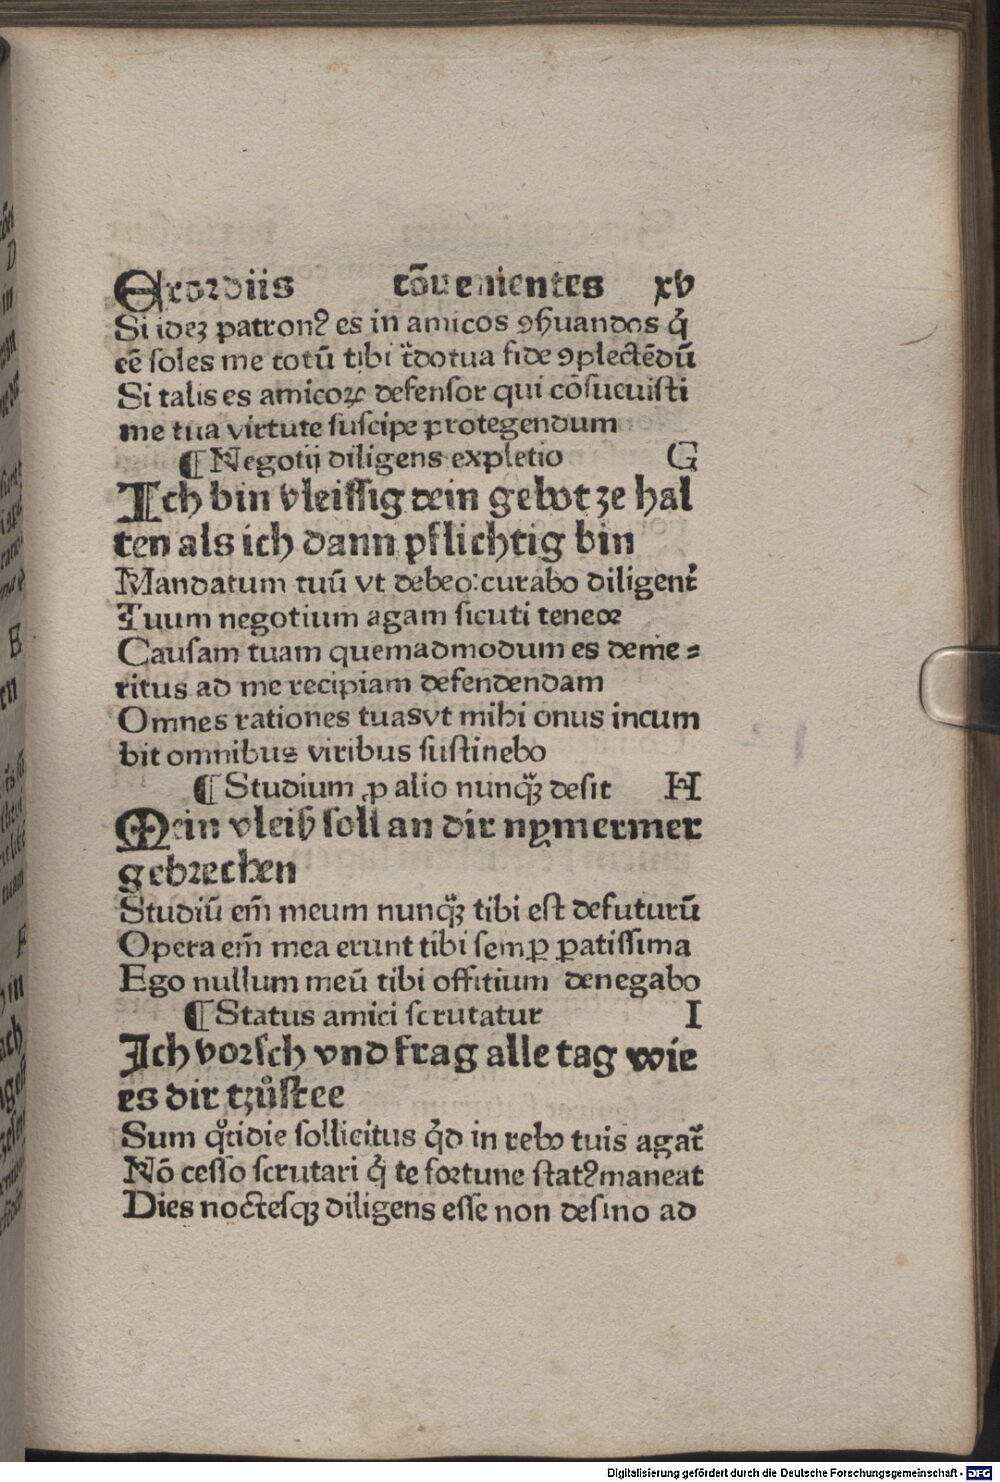 Exordiis cōuenientes xv
Si idez patronꝰ es in amicos ꝯẜuandos q̄
cē soles me totū tibi t̄do tua fide ꝯplectēdū
Si talis es amicoꝝ defensor qui cōsueuisti
me tua virtute suscipe protegendum
¶ Negotij diligens expletio G
Ich bin vleissig dein gebot ze hal
ten als ich dann pflichtig bin
Mandatum tuū vt debeo: curabo diligent̄
Tuum negotium agam sicuti teneor
Causam tuam quemadmodum es deme⸗
ritus ad me recipiam defendendam
Omnes rationes tuas vt mihi onus incum
bit omnibus viribus sustinebo
¶ Studium ꝓ alio nunqꝫ desit H
Mein vleiß soll an dir nymermer
gebrechen
Studiū em̄ meum nunqꝫ tibi est defuturū
Opera em̄ mea erunt tibi semꝑ ꝑatissima
Ego nullum meū tibi offitium denegabo
¶ Status amici scrutatur I
Ich vorsch vnd frag alle tag wie
es dir tzůstee
Sum qͦtidie sollicitus qd̄ in rebꝰ tuis agat̄
Nō cesso scrutari q̄ te fortune statꝰ maneat
Dies noctesqꝫ diligens esse non desino ad
Digitalisierung gefördert durch die Deutsche Forschungsgemeinschaft - DFG